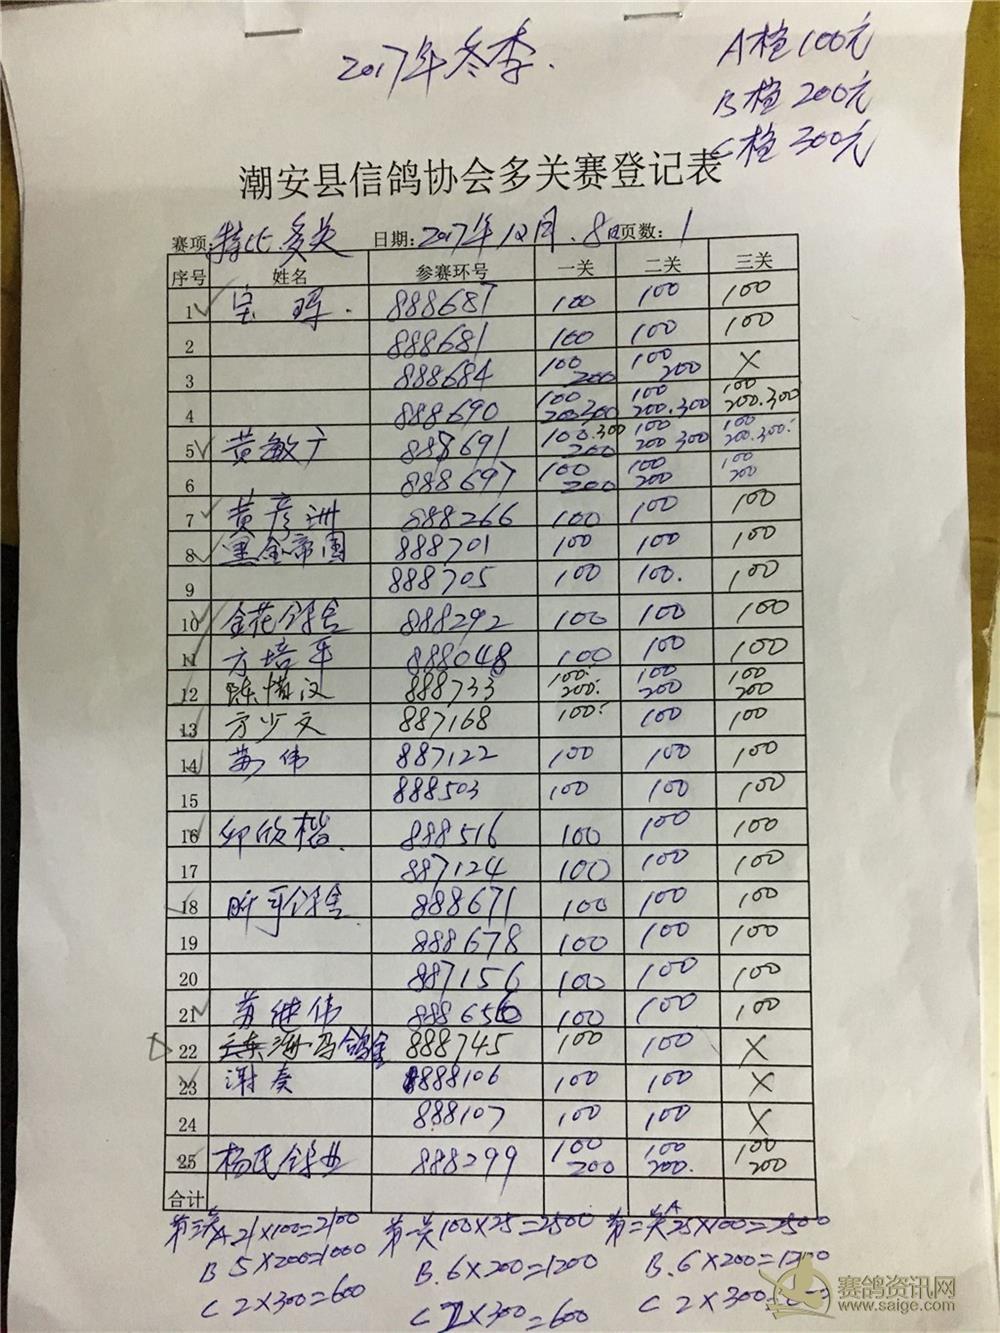 2017年冬季.
A档100元
B档200元
C档300元
潮安县信鸽协会多关赛登记表
赛项:特比多关 日期:2017年12月.8日 页数:1
序号 姓名 参赛环号 一关 二关 三关
1 宝晖. 888687 100 100 100
2 888681 100 100 100
3 888684 100 200 100 200 X
4 888690 100 200 300 100 200.300 100 200.300
5 黄敏广 888691 100.300 200 100 200 300 100 200.300.
6 888697 100 200 100 200 100 200
7 黄彦洲 888266 100 100 100
8 黑金帝国 888701 100 100 100
9 888705 100 100. 100
10 金花鸽舍 888292 100 100 100
11 方培平 888048 100 100 100
12 陈惜汉 888733 100. 200. 100 200 100 200
13 方少文 887168 100. 100 100
14 苏伟 887122 100 100 100
15 888503 100 100 100
16 邱欣楷. 888516 100 100 100
17 887124 100 100 100
18 昕哥鸽舍 888671 100 100 100
19 888678 100 100 100
20 887156 100 100 100
21 苏继伟 888656 100 100 100
22 鸽舍 888745 100 100 X
23 谢奏 888106 100 100 X
24 888107 100 100 X
25 杨氏鸽业 888299 100 200 100 200. 100 200
合计
第三关A 21×100=2100 第一关100×25=2500 第二关A 25×100=2500
B 5×200=1000 B.6×200=1200 B.6×200=1200
C 2×300=600 C 2×300=600 C 2×300=
赛鸽资讯网
www.saige.com